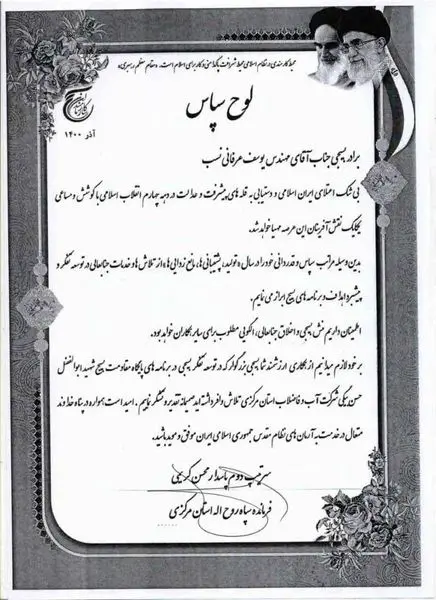 محیط کارمندی در نظام اسلامی محیط شرافت، پاکدامنی و کار برای اسلام است. «مقام معظم رهبری»
لوح سپاس
آذر ۱۴۰۰
برادر بسیجی جناب آقای مهندس یوسف عرفانی نسب
بی شک اعتلای ایران اسلامی و دستیابی به قله های پیشرفت و عدالت در دهه چهارم انقلاب اسلامی با کوشش و مساعی
یکایک نقش آفرینان این عرصه مهیا خواهد شد.
بدین وسیله مراتب سپاس و قدردانی خود را در سال «تولید، پشتیبانی ها، مانع زدایی ها» از تلاش ها و خدمات جنابعالی در توسعه تفکر و
پیشبرد اهداف و برنامه های بسیج ابراز می نمایم.
اطمینان داریم منش بسیجی و اخلاق جنابعالی، الگویی مطلوب برای سایر همکاران خواهد بود.
بر خود لازم میدانیم از همکاری ارزشمند شما بسیجی بزرگوار که در توسعه تفکر بسیجی در برنامه های پایگاه مقاومت بسیج شهید ابوالفضل
حسن بیگی شرکت آب و فاضلاب استان مرکزی تلاش وافر داشته اید صمیمانه تقدیر و تشکر نماییم. امید است همواره در پناه خداوند
متعال در خدمت به آرمان های نظام مقدس جمهوری اسلامی ایران موفق و موید باشید.
سرتیپ دوم پاسدار محسن کریمی
فرمانده سپاه روح اله استان مرکزی